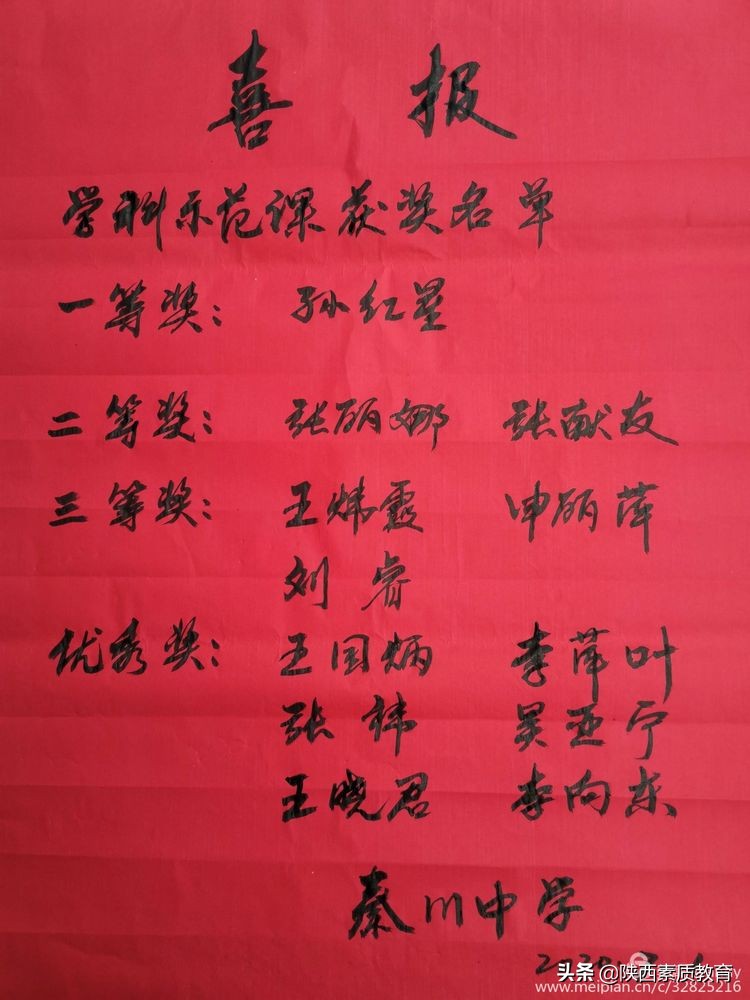 喜报
学科示范课获奖名单
一等奖： 孙红星
二等奖： 张丽娜 张献友
三等奖： 王炜霞 申丽萍
刘睿
优秀奖： 王国炳 李萍叶
张祎 吴亚宁
王晓君 李向东
秦川中学
头条 @陕西素质教育
www.meipian.cn/c/32825216